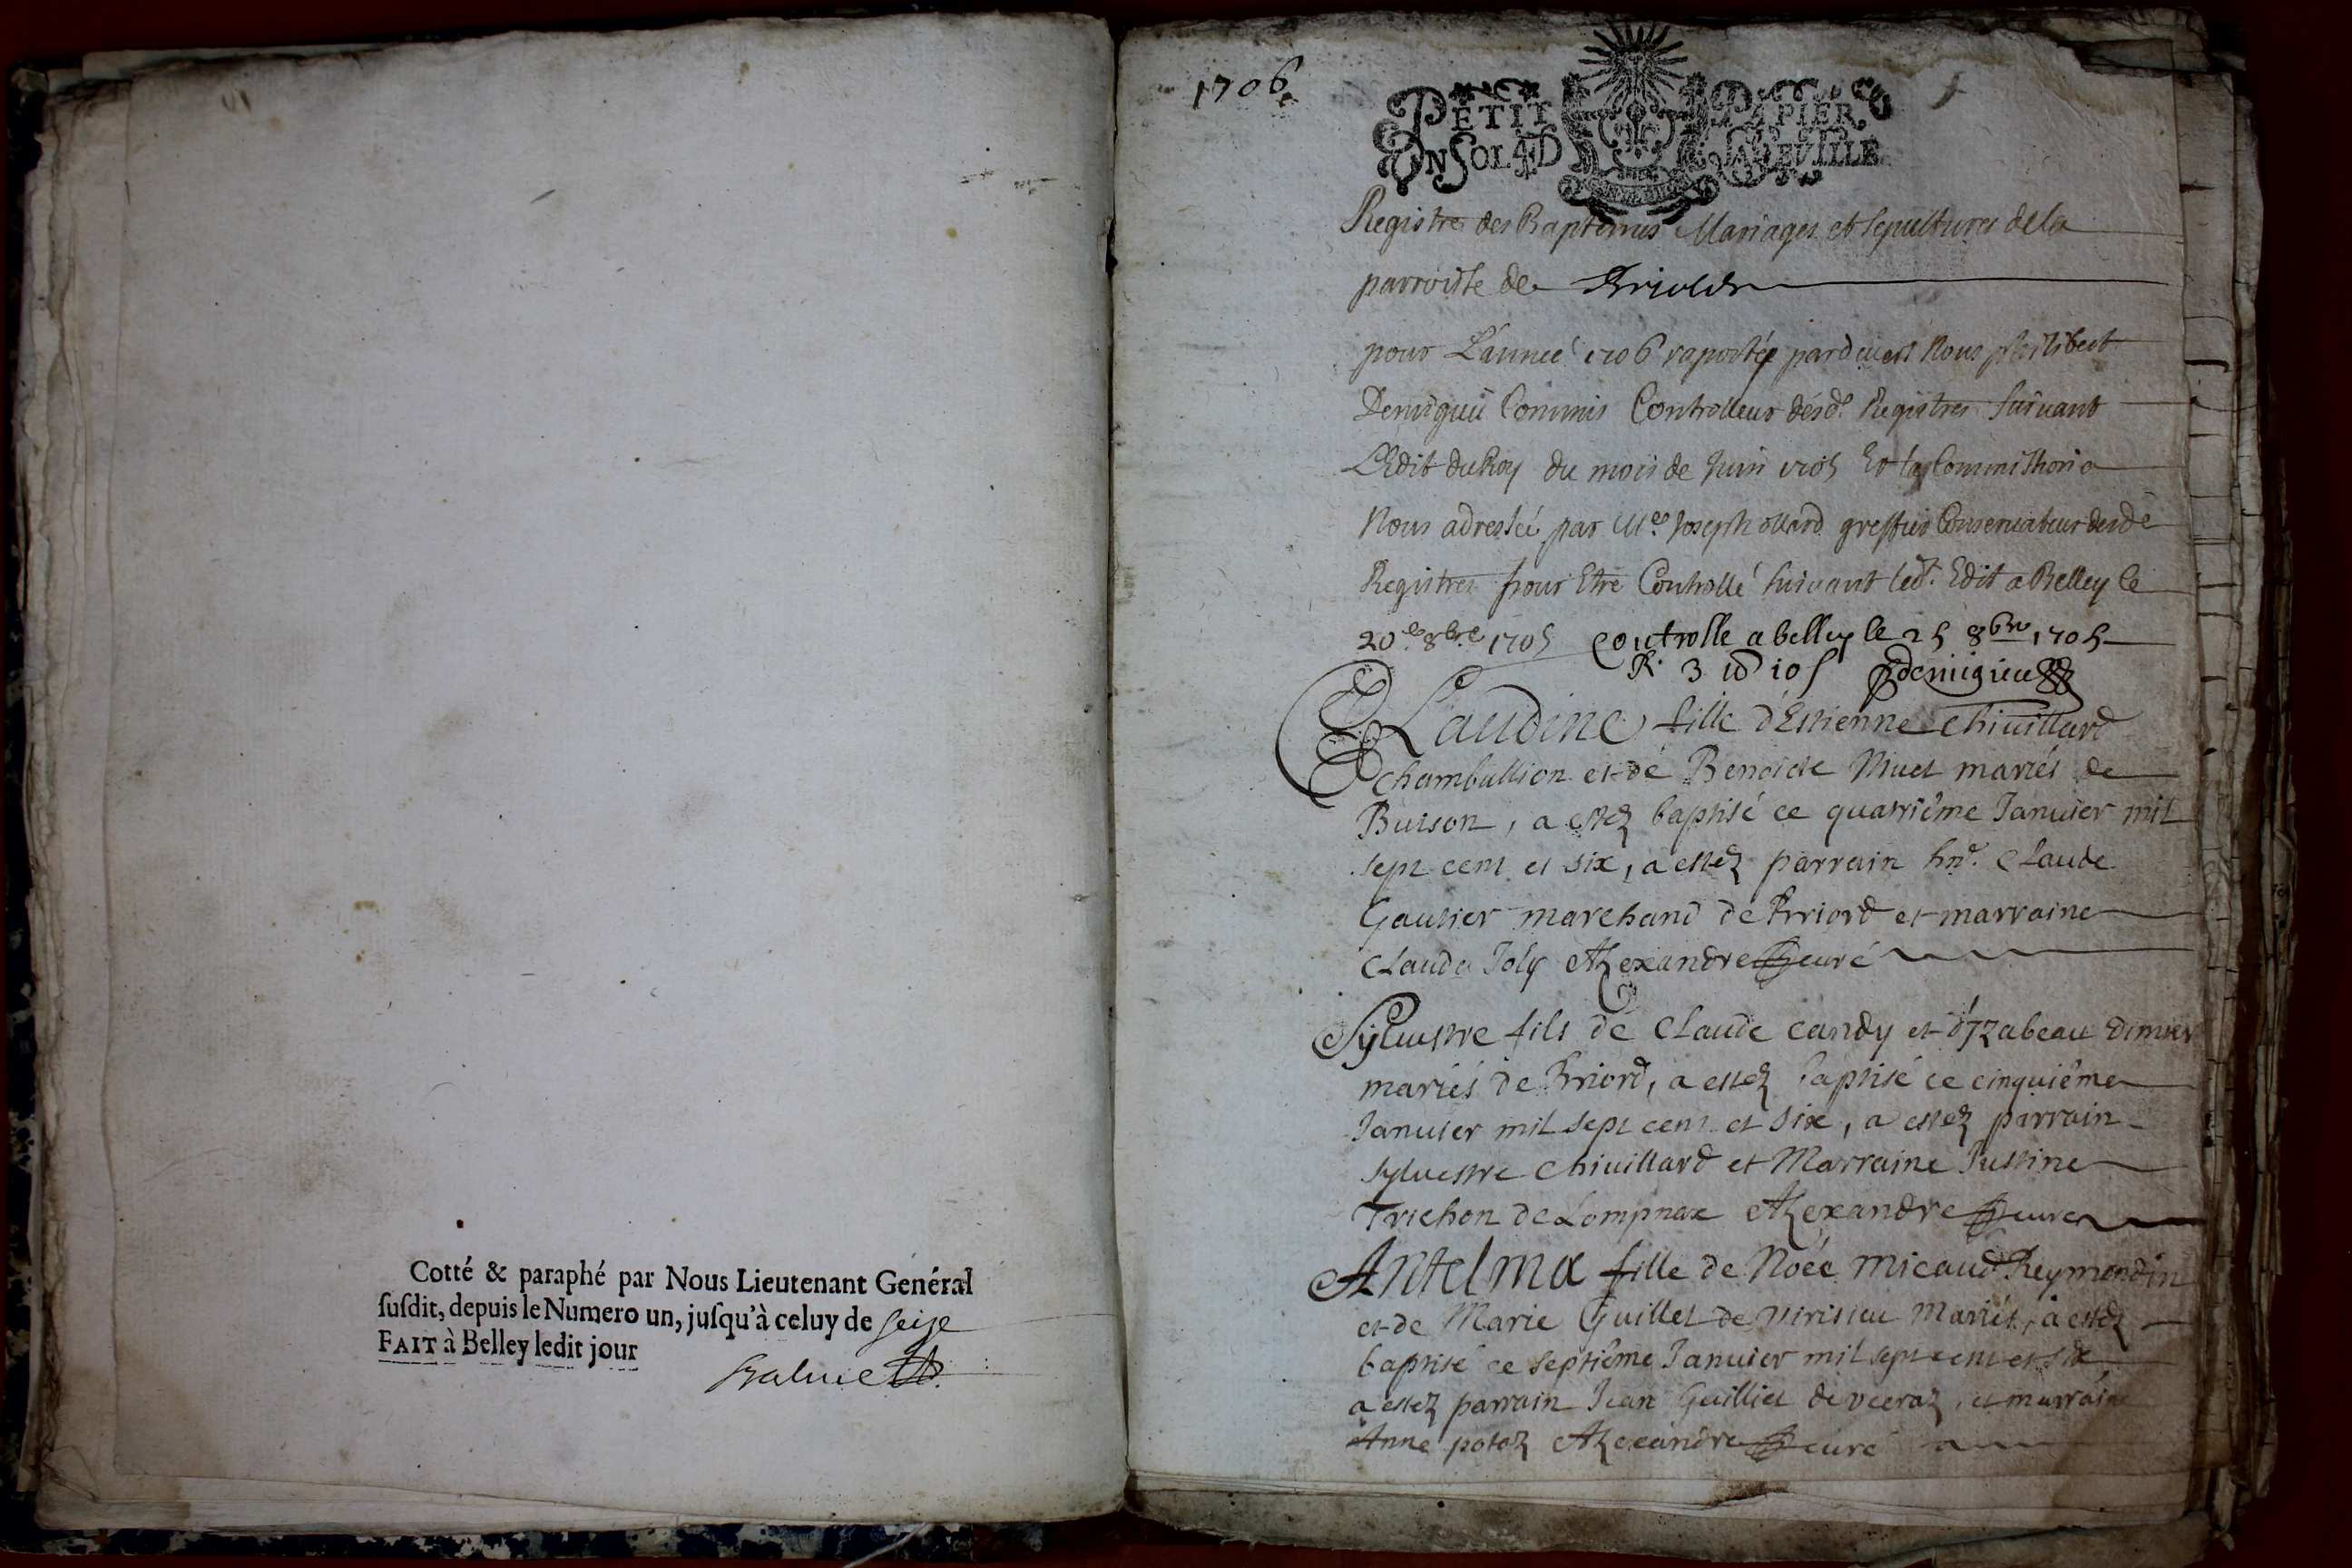 Cotté & paraphé par Nous Lieutenant Genéral
suſdit, depuis le Numero un, juſqu'à celuy de seize
FAIT à Belley ledit jour
1706
PETIT PAPIER
UN SOL 4 D LA FEUILLE
Registre des Baptemes Mariages et sepultures de la
parroisse de Briord
pour L'année 1706 raportée pardevert Nous philibert
Demigieu Commis Controlleur desd. Registres suivant
L'Edit du Roy du mois de Juin 1705 Et la Commission a
Nous adressée par Me Joseph ollard greffier Conservateur desd
Registres pour Etre Controllé suivant led. Edit a Belley le
20e 8bre 1705 Controlle a belley le 25 8bre 1705
R. 3 10 s Demigieu
CLaudine fille d'Estienne Chivillard
Chambullion et de Benoiste Muet mariés de
Buison, a estez baptisé ce quatriême Janvier mil
sept cent et six, a estez parrain hn.e Claude
Gautier marchand de Briord et marraine
Claude Joly Alexandre curé
Sylvestre fils de Claude Candy et d'yzabeau Dimier
mariés de Briord, a estez baptisé ce cinquiême
Janvier mil sept cent et six, a estez parrain
sylvestre Chivillard et Marraine Justine
Trichon de Lompnax Alexandre curé
Antelma fille de Noée micaud Reymondin
et de Marie Guillet de virisieu Mariés, a estez
baptisé ce septiême Janvier mil sept cent et six
a estez parrain Jean Guilliet de veeraz, et marraine
Anne potoz Alexandre curé